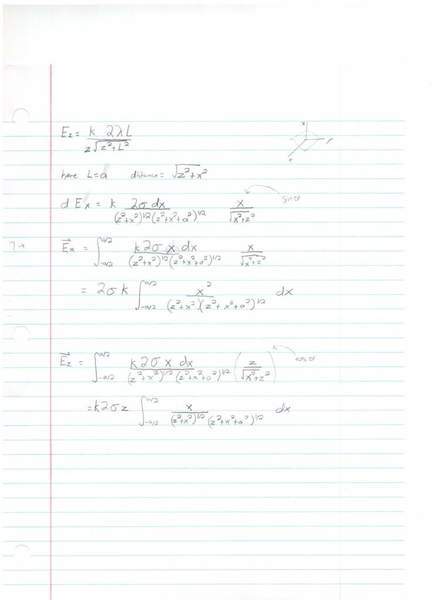 E_z = k 2λL / z√(z²+L²)
here L=a distance = √(z²+x²)
d E_x = k 2σ dx / (z²+x²)^1/2 (z²+x²+a²)^1/2 x / √(x²+z²) sin θ
E⃗_x = ∫_-a/2^a/2 k 2σ x dx / (z²+x²)^1/2 (z²+x²+a²)^1/2 x / √(x²+z²)
= 2σk ∫_-a/2^a/2 x² / (z²+x²)(z²+x²+a²)^1/2 dx
E⃗_z = ∫_-a/2^a/2 k 2σ x dx / (z²+x²)^1/2 (z²+x²+a²)^1/2 (z / √(x²+z²)) cos θ
= k2σz ∫_-a/2^a/2 x / (z²+x²)^1/2 (z²+x²+a²)^1/2 dx